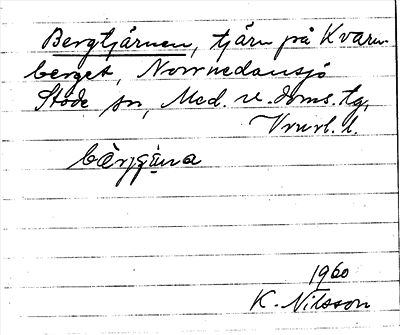 Bergtjärnen, tjärn på Kvarn-
berget, Norrnedansjö
Stöde sn, Med. v. doms. tg,
l.
1960
K. Nilsson